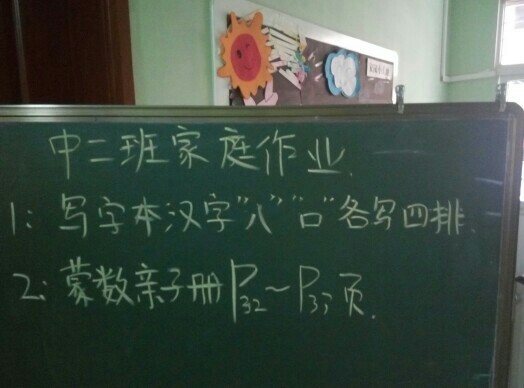 中二班家庭作业.
1: 写字本汉字"八""口"各写四排.
2: 蒙数亲子册P32~P33页.